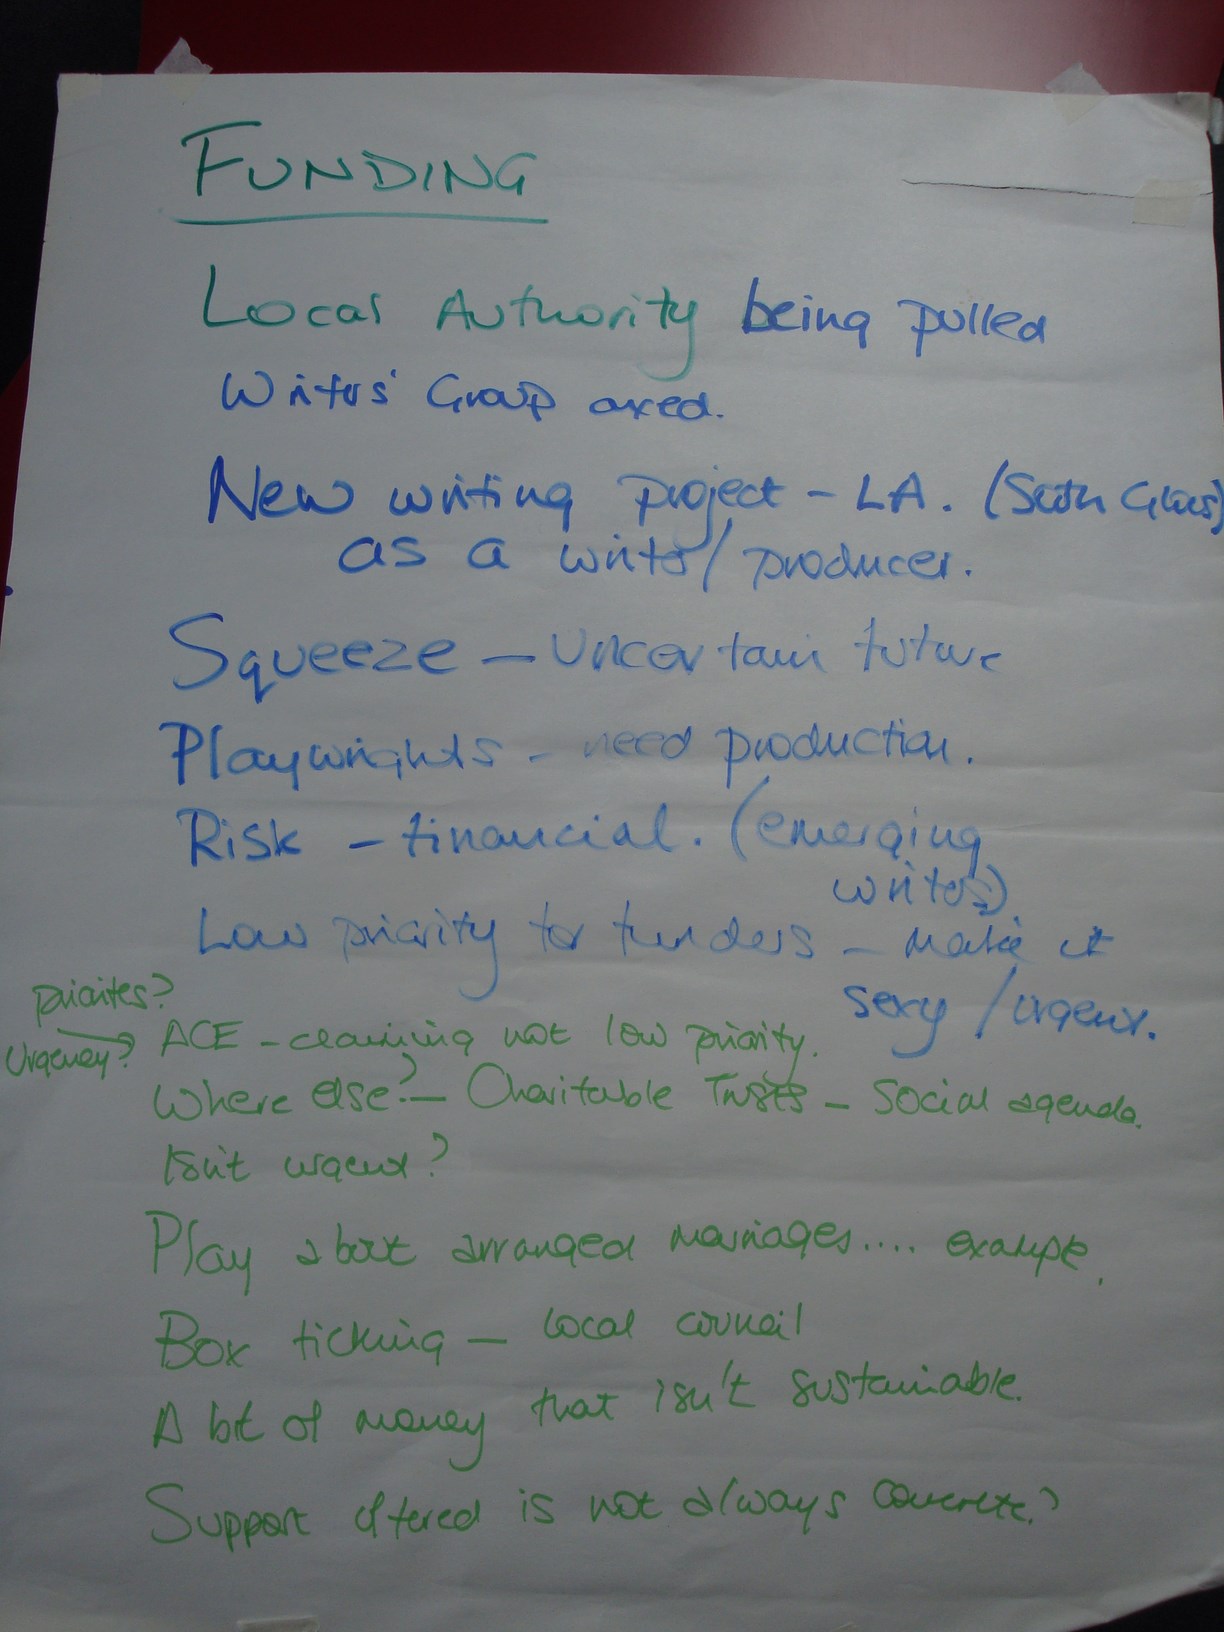 FUNDING
Local Authority being pulled
Writers' Group axed.
New writing project - LA. (South Glos)
as a writer/producer.
Squeeze - Uncertain future
Playwrights - need production.
Risk - financial. (emerging
writers).
Low priority for funders - make it
sexy / urgent.
priorites?
Urgency? → ACE - claiming not low priority.
Where else? - Charitable Trusts - Social agenda.
Isn't urgent?
Play about arranged marriages.... example.
Box ticking - local council
A bit of money that isn't sustainable.
Support offered is not always concrete?